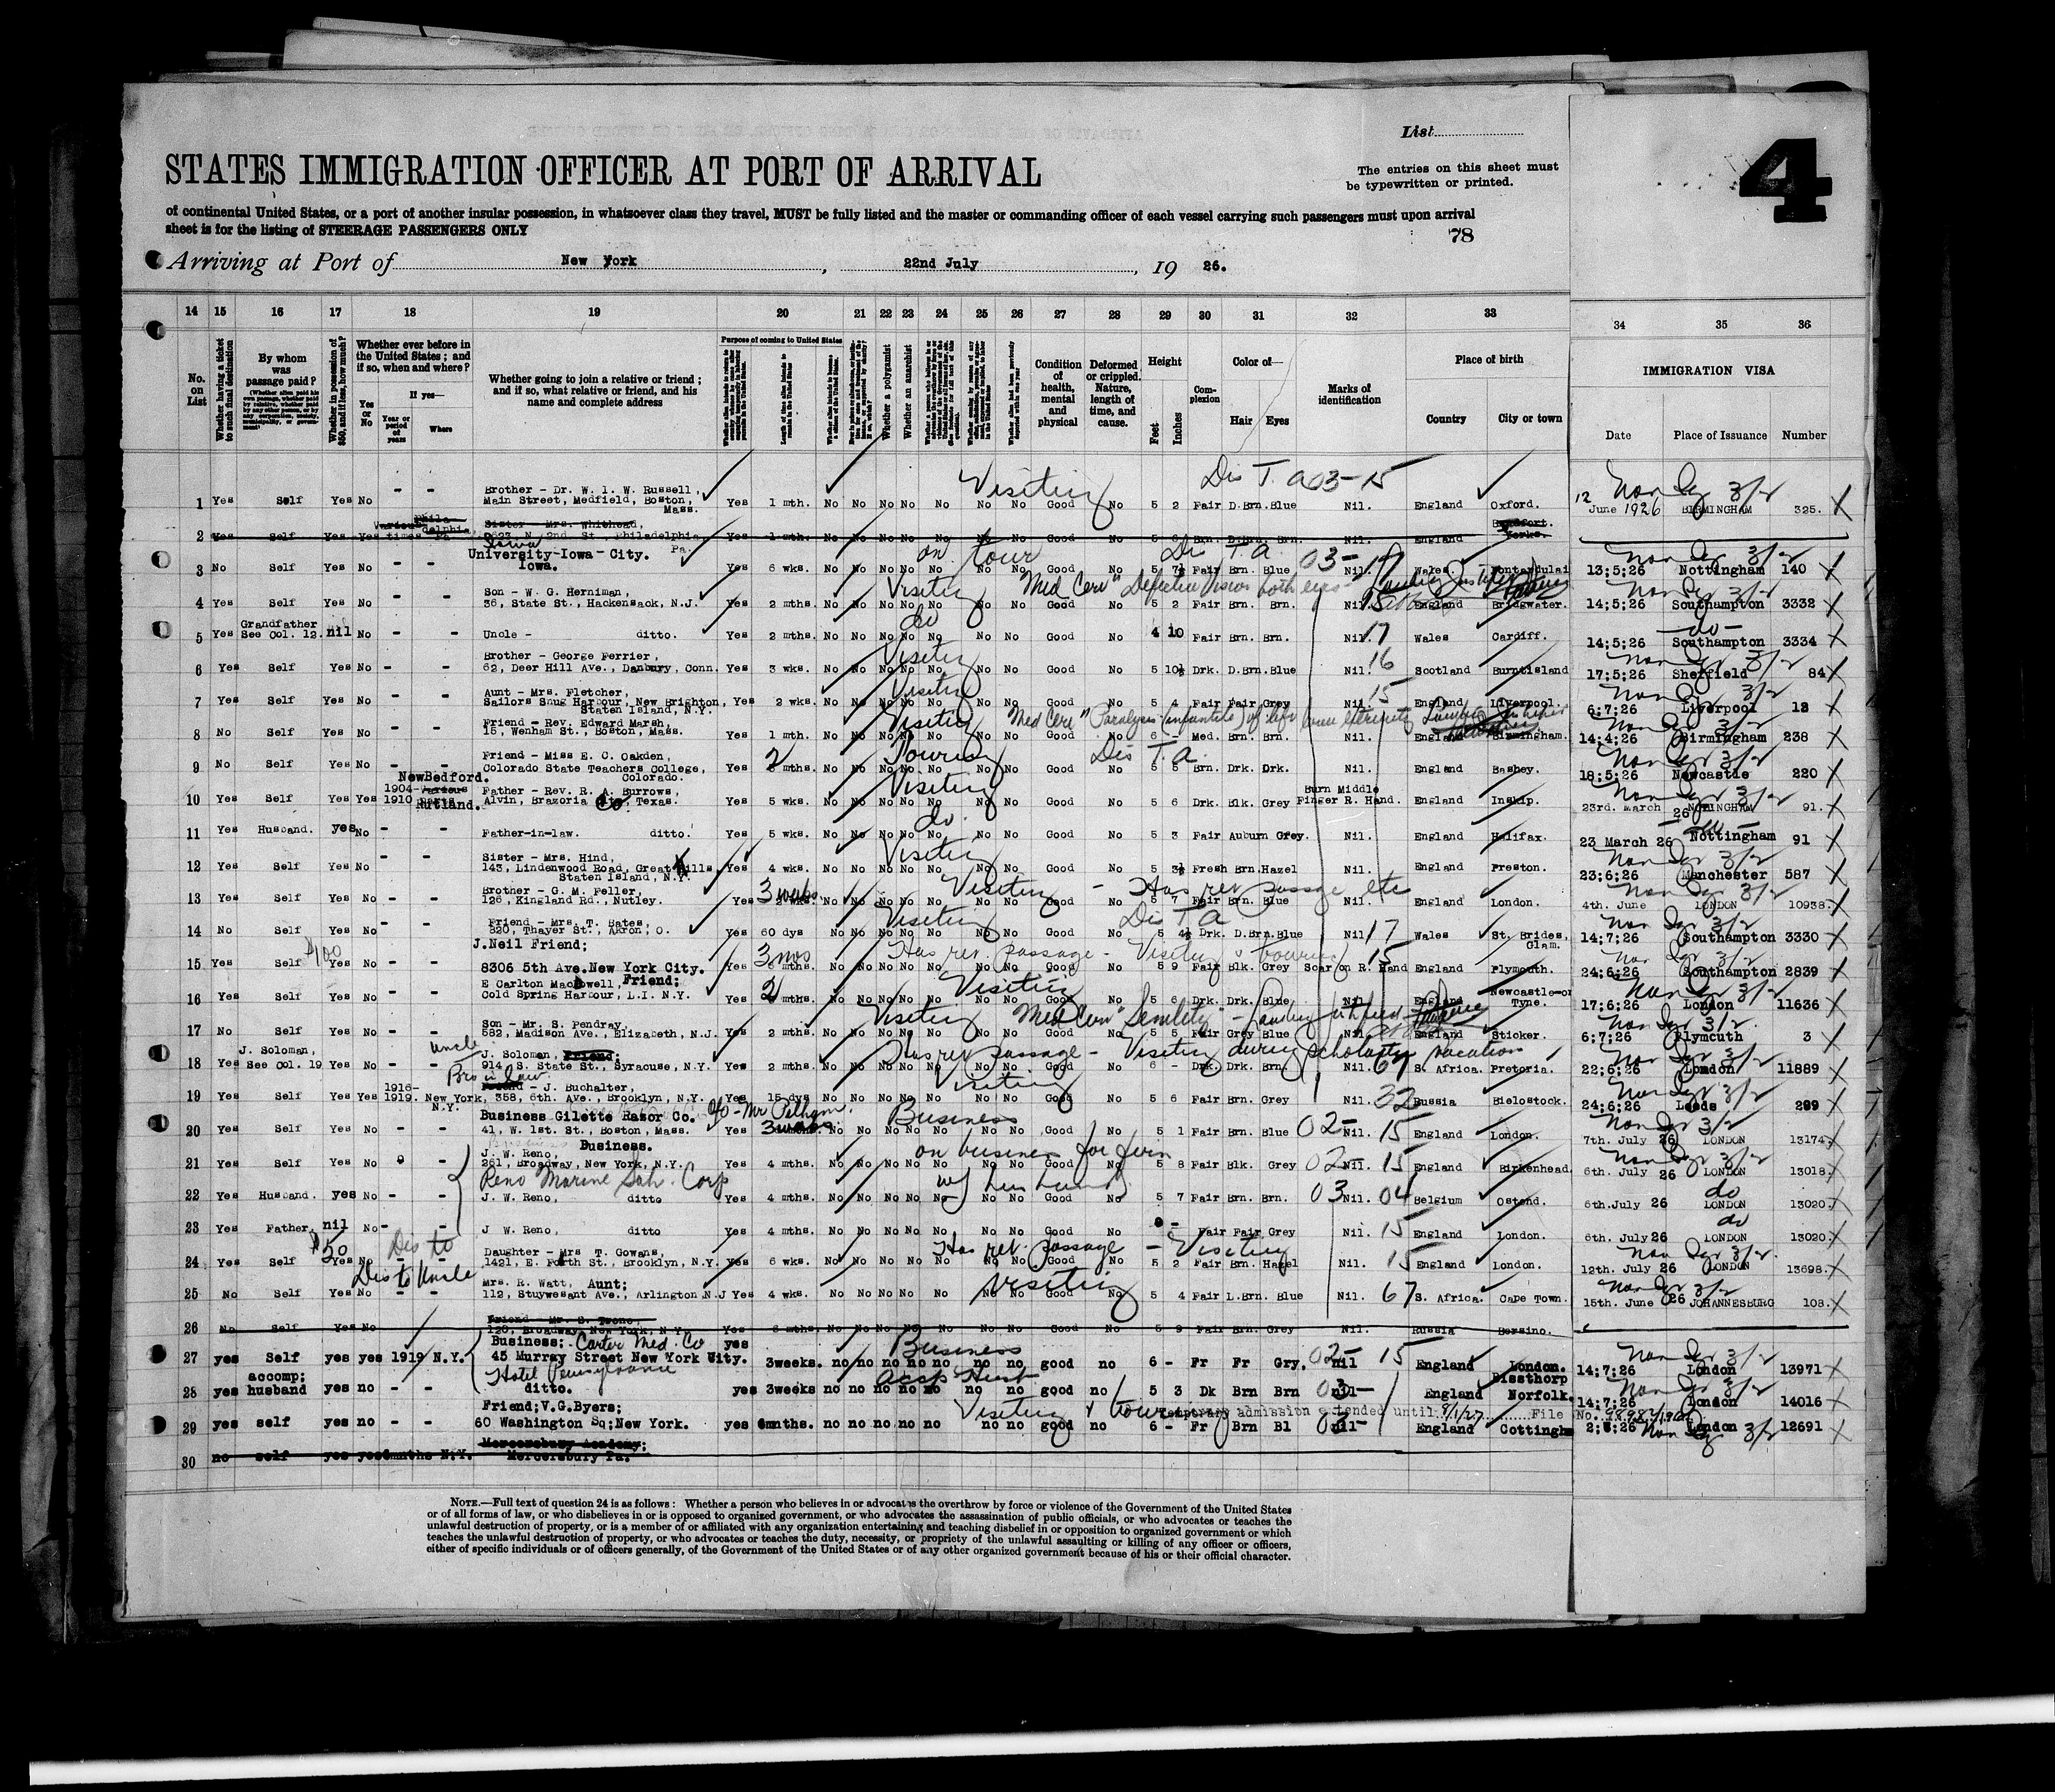 List
4
STATES IMMIGRATION OFFICER AT PORT OF ARRIVAL
The entries on this sheet must
be typewritten or printed.
of continental United States, or a port of another insular possession, in whatsoever class they travel, MUST be fully listed and the master or commanding officer of each vessel carrying such passengers must upon arrival
sheet is for the listing of STEERAGE PASSENGERS ONLY
78
Arriving at Port of New York, 22nd July, 19 26.
14 15 16 17 18 19 20 21 22 23 24 25 26 27 28 29 30 31 32 33 34 35 36
No. on List
Whether having a ticket to such final destination
By whom was passage paid?
Whether in possession of $50, and if less, how much?
Whether ever before in the United States; and if so, when and where?
Yes or No
If yes—
Year or period of years
Where
Whether going to join a relative or friend; and if so, what relative or friend, and his name and complete address
Purpose of coming to United States
Whether a polygamist
Whether an anarchist
Condition of health, mental and physical
Deformed or crippled. Nature, length of time, and cause.
Height
Feet Inches
Complexion
Color of—
Hair Eyes
Marks of identification
Place of birth
Country City or town
IMMIGRATION VISA
Date Place of Issuance Number
Visiting Dis T. a 03-15
1 Yes Self Yes No - - Brother - Dr. W. I. W. Russell, Main Street, Medfield, Boston, Mass. Yes 1 mth. No No No No No No No Good No 5 2 Fair D.Brn. Blue Nil. England Oxford. 12 June 1926 BIRMINGHAM 325.
2 Yes Self Yes Yes Various times Philadelphia Pa Sister - Mrs. Whithead, N. 2nd St., Philadelphia Pa. Yes 1 mth. England Yorks.
on tour Dis T. a 03-17
3 No Self Yes No - - Iowa University-Iowa-City. Iowa. Yes 6 wks. No No No No No No No Good No 5 7½ Fair Brn. Blue Nil. Wales Pontardulai 13;5;26 Nottingham 140
Visiting Med Cert "Defective Vision both eyes"
4 Yes Self Yes No - - Son - W. G. Herniman, 36, State St., Hackensack, N.J. Yes 2 mths. No No No No No No No Good No 5 2 Fair Brn. Brn. Nil. 15 England Bridgwater. 14;5;26 Southampton 3332
do
5 Yes Grandfather See Col. 12. nil No - - Uncle - ditto. Yes 2 mths. No No No No No No No Good No 4 10 Fair Brn. Brn. Nil. 17 Wales Cardiff. 14;5;26 Southampton 3334
Visiting
6 Yes Self Yes No - - Brother - George Ferrier, 62, Deer Hill Ave., Danbury, Conn. Yes 3 wks. No No No No No No No Good No 5 10½ Drk. D.Brn. Blue Nil. 16 Scotland Burntisland 17;5;26 Sheffield 84
Visiting
7 Yes Self Yes No - - Aunt - Mrs. Fletcher, Sailors Snug Harbour, New Brighton, Staten Island, N.Y. Yes 2 wks. No No No No No No No Good No 5 4 Fair Fair Grey Nil. 15 England Liverpool. 6;7;26 Liverpool 13
Visiting Med Cert "Paralysis (infantile) of left
8 No Self Yes No - - Friend - Rev. Edward Marsh, 15, Wenham St., Boston, Mass. Yes 1 mth. No No No No No No No Good No 6 - Med. Brn. Brn. Nil. England Birmingham. 14;4;26 Birmingham 238
Tourist Dis T. a
9 No Self Yes No - - Friend - Miss E. C. Oakden, Colorado State Teachers College, Colorado. Yes 2 mths. No No No No No No No Good No 5 5 Brn. Drk. Drk. Nil. England Bashey. 18;5;26 Newcastle 220
Visiting
10 Yes Self Yes Yes 1904-1910 New Bedford. Rutland. Father - Rev. R. A. Burrows, Alvin, Brazoria Co, Texas. Yes 5 wks. No No No No No No No Good No 5 6 Drk. Blk. Grey Burn Middle Finger R. Hand. England Inskip. 23rd. March 26 NOTTINGHAM 91.
do.
11 Yes Husband. yes No - - Father-in-law. ditto. Yes 5 wks. No No No No No No No Good No 5 3 Fair Auburn Grey. Nil. England Halifax. 23 March 26 Nottingham 91
Visiting
12 Yes Self Yes No - - Sister - Mrs. Hind, 143, Lindenwood Road, Great Kills, Staten Island, N.Y. Yes 4 wks. No No No No No No No Good No 5 3½ Fresh Brn. Hazel Nil. England Preston. 23;6;26 Manchester 587
Visiting - Has ret passage etc
13 Yes Self Yes No - - Brother - G. M. Feller, 126, Kingland Rd., Nutley. Yes 3 weeks No No No No No No No Good No 5 7 Fair Brn. Blue Nil. England London. 4th. June LONDON 10938.
Visiting Dis T. a
14 No Self Yes No - - Friend - Mrs. T. Bates, 820, Thayer St., Akron, O. Yes 60 dys No No No No No No No Good No 5 4½ Drk. D.Brn. Blue Nil 17 Wales St. Brides, Glam. 14;7;26 Southampton 3330
Has ret. passage - Visiting & touring
15 Yes Self $100 Yes No - - J.Neil Friend; 8306 5th Ave. New York City. Yes 3 mos No No No No No No No Good No 5 9 Fair Blk. Grey Scar on R. Hand 15 England Plymouth. 24;6;26 Southampton 2839
Visiting
16 Yes Self Yes No - - E Carlton MacDowell, Friend; Cold Spring Harbour, L.I. N.Y. Yes 2 mths. No No No No No No No Good No 5 6 Drk. Drk. Blue Nil England Newcastle-on Tyne. 17;6;26 London 11636
Visiting Med Cert "Senility"
17 No Self Yes No - - Son - Mr. S. Pendray, 582, Madison Ave., Elizabeth, N.J. Yes 2 mths. No No No No No No No Good No 5 5 Fair Grey Blue Nil England Sticker. 6;7;26 Plymouth 3
Has ret passage - Visiting during scholastic vacation
18 Yes J. Soloman, See Col. 19 Yes No - - Uncle J. Soloman, Friend; 914, S. State St., Syracuse, N.Y. Yes 2 mths. No No No No No No No Good No 6 - Drk. Drk. Brn. Nil. 67 S. Africa. Pretoria. 22;6;26 London 11889
Visiting
19 Yes Self Yes Yes 1916-1919. New York, N.Y. Bro in law Friend - J. Buchalter, 358, 6th. Ave., Brooklyn, N.Y. Yes 15 dys No No No No No No No Good No 5 6 Fair Brn. Grey Nil. 32 Russia Bielostock. 24;6;26 Leeds 299
Business
20 Yes Self Yes No - - Business Gilette Razor Co. c/o - Mr Pelham. 41, W. 1st. St., Boston, Mass. Yes 3 No No No No No No No Good No 5 1 Fair Brn. Blue 02- Nil. 15 England London. 7th. July 26 LONDON 13174.
on business for firm
21 Yes Self Yes No - Business. J. W. Reno, 261, Broadway, New York, N.Y. Yes 4 mths. No No No No No No No Good No 5 8 Fair Blk. Grey 02 Nil. 15 England Birkenhead. 6th. July 26 LONDON 13018.
Reno Marine Salv. Corp w/ husband
22 Yes Husband. yes No - - J. W. Reno, ditto Yes 4 mths. No No No No No No No Good No 5 7 Fair Brn. Brn. 03 Nil. 04 Belgium Ostend. 6th.July 26 LONDON 13020.
23 Yes Father, nil No - - J. W. Reno, ditto Yes 4 mths. No No No No No No No Good No Fair Fair Grey Nil. 15 England London. 6th. July 26 LONDON 13020.
Dis to Has ret. passage - Visiting
24 Yes Self $50 Yes No - - Daughter - Mrs T. Gowans, 1421, E. Forth St., Brooklyn, N.Y. Yes 6 wks. No No No No No No No Good No 5 2 Fair Brn. Hazel Nil. 15 England London. 12th. July 26 LONDON 13698.
Dis to Uncle Visiting
25 No Self Yes No - - Mrs. R. Watt, Aunt; 112, Stuywesant Ave., Arlington N.J Yes 4 wks. No No No No No No No Good No 5 4 Fair L.Brn. Blue Nil. 67 S. Africa. Cape Town. 15th. June 26 JOHANNESBURG 108.
26 No Self Yes No Friend - Mr. S. Trone, 120, Broadway, New York, N.Y. Yes 6 mths. No No No No No No No Good No 5 9 Fair Brn. Grey Nil. Russia
Business
27 yes Self yes yes 1919 N.Y. Business; Carter Med. Co 45 Murray Street New York City. yes 3weeks. no no no no no no no good no 6 - Fr Fr Gry. 02- nil 15 England London. 14;7;26 London 13971
Hotel Pennsylvania
28 yes accomp; husband yes no - - ditto. yes 3weeks no no no no no no no good no 5 3 Dk Brn Brn nil England Norfolk. 14;7;26 London 14016
Visiting & touring temporary admission extended until 9/1/27 File No.
29 yes self yes no - - Friend;V.G.Byers; 60 Washington Sq;New York. yes 6mnths. no no no no no no no good no 6 - Fr Brn Bl nil England London 12691
30 no self yes yes 6mnths N.Y. Mercersburg Academy; Mercersburg Pa.
NOTE.—Full text of question 24 is as follows: Whether a person who believes in or advocates the overthrow by force or violence of the Government of the United States
or of all forms of law, or who disbelieves in or is opposed to organized government, or who advocates the assassination of public officials, or who advocates or teaches the
unlawful destruction of property, or is a member of or affiliated with any organization entertaining and teaching disbelief in or opposition to organized government or which
teaches the unlawful destruction of property, or who advocates or teaches the duty, necessity, or propriety of the unlawful assaulting or killing of any officer or officers,
either of specific individuals or of officers generally, of the Government of the United States or of any other organized government because of his or their official character.